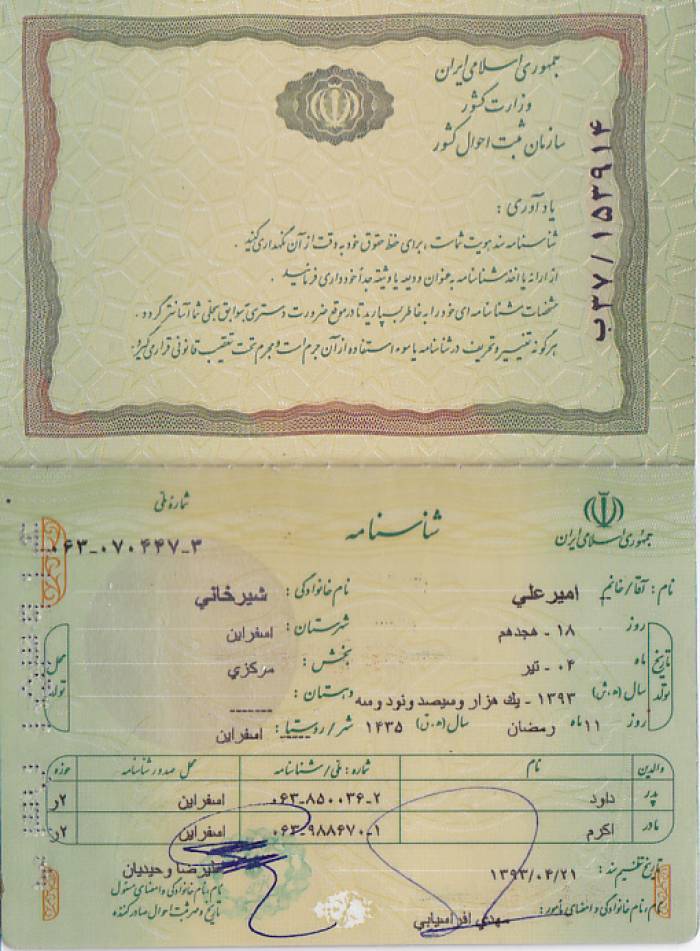 جمهوری اسلامی ایران
وزارت کشور
سازمان ثبت احوال کشور
ب۳۷/۱۵۳۹۱۴
یادآوری :
شناسنامه سند هویت شماست ، برای حفظ حقوق خود به دقت از آن نگهداری کنید .
از ارائه یا اخذ شناسنامه به عنوان ودیعه یا وثیقه جداً خودداری فرمائید .
مشخصات شناسنامه ای خود را به خاطر بسپارید تا در موقع ضرورت دسترسی به سوابق سجلی شما آسانتر گردد .
هرگونه تغییر و تحریف در شناسنامه یا سوء استفاده از آن جرم است و مجرم تحت تعقیب قانونی قرار می گیرد.
جمهوری اسلامی ایران
شناسنامه
شماره ملی
۰۶۳-۰۷۰۴۴۷-۳
نام : آقا/خانم امیرعلي نام خانوادگی : شيرخاني
تاریخ تولد
روز ۱۸ - هجدهم شهرستان : اسفراین
ماه ۰۴ - تیر بخش : مرکزي
سال (ه.ش) ۱۳۹۳ - یك هزار وسیصد ونود وسه دهستان : ------
روز ۱۱ ماه رمضان سال (ه.ق) ۱۴۳۵ شهر/روستا : اسفراین
محل تولد
والدین نام شماره : ملی/شناسنامه محل صدور شناسنامه حوزه
پدر داود ۰۶۳-۸۵۰۰۳۶-۲ اسفراین ۲ر
مادر اکرم ۰۶۳-۹۸۸۶۷۰-۱ اسفراین ۲ر
تاریخ تنظیم سند : ۱۳۹۳/۰۴/۲۱
علیرضا وحیدیان
نام، نام خانوادگی و امضای مسئول
تاریخ و مهر ثبت احوال صادرکننده
نام، نام خانوادگی و امضای مأمور : مهدي افراسیابي